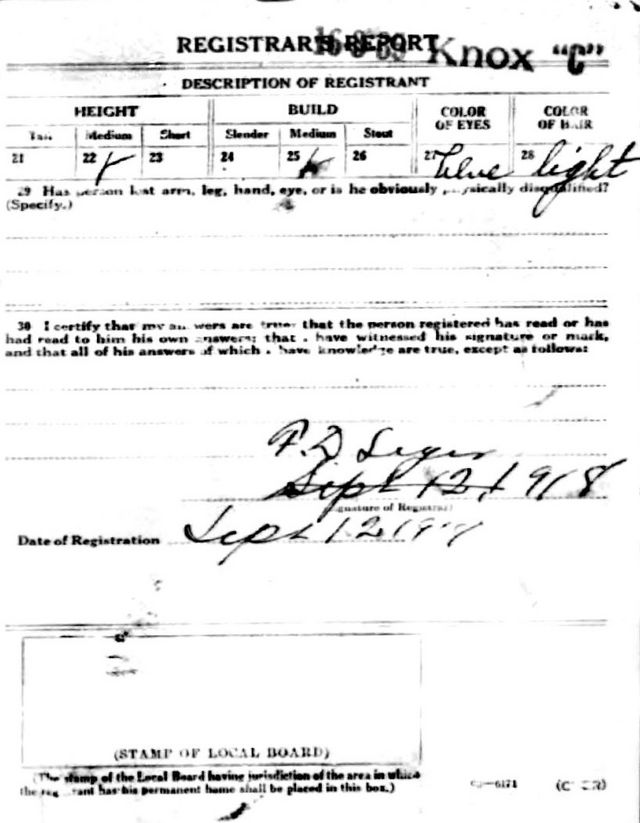 REGISTRAR'S REPORT Knox "C"
DESCRIPTION OF REGISTRANT
HEIGHT BUILD COLOR OF EYES COLOR OF HAIR
Tall Medium Short Slender Medium Stout
21 22 x 23 24 25 x 26 27 blue 28 light
29 Has person lost arm, leg, hand, eye, or is he obviously physically disqualified?
(Specify.)
30 I certify that my answers are true; that the person registered has read or has
had read to him his own answers; that I have witnessed his signature or mark,
and that all of his answers of which I have knowledge are true, except as follows:
F. D.
Sept 12 1918
(Signature of Registrar)
Date of Registration Sept 12 1918
(STAMP OF LOCAL BOARD)
(The stamp of the Local Board having jurisdiction of the area in which
the registrant has his permanent home shall be placed in this box.)
—6171